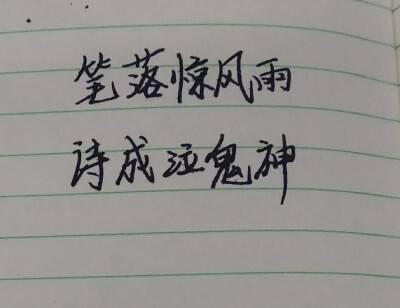 笔落惊风雨
诗成泣鬼神